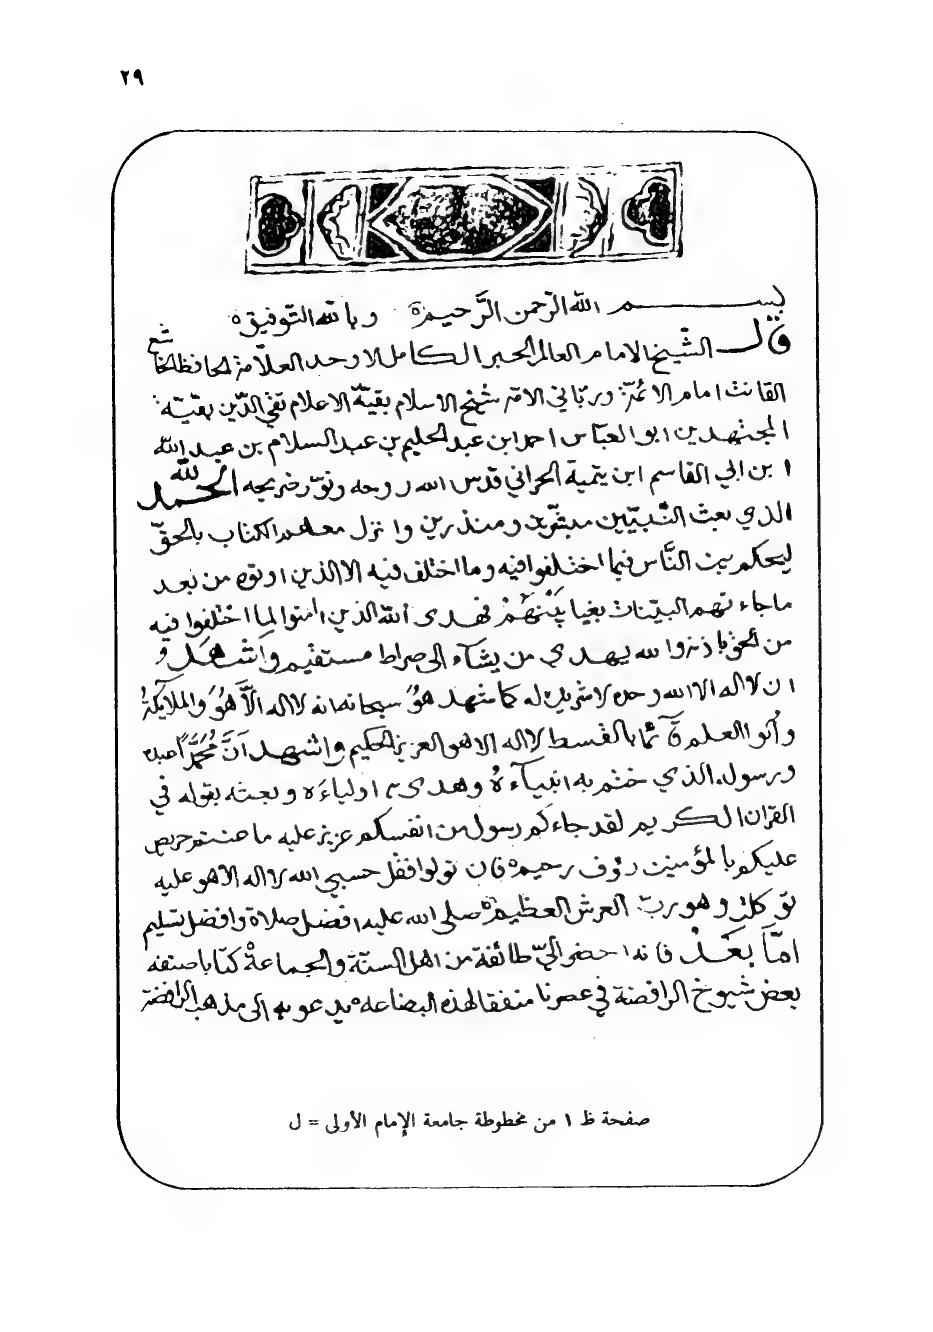 ٢٩
بسم الله الرحمن الرَّحيم وبالله التوفيق
قال الشيخ الامام العالم الحبر الكامل الاوحد العلامة الحافظ الخاشع
القانت امام الائمة ورباني الامة شيخ الاسلام بقية الاعلام تقي الدين بقية
المجتهدين ابو العباس احمد ابن عبد الحليم بن عبد السلام بن عبد الله
ابن ابي القاسم ابن تيمية الحراني قدس الله روحه ونوّر ضريحه الحمد لله
الذي بعث النَّبيّين مبشّرين ومنذرين وانزل معهم الكتاب بالحقّ
ليحكم بين النَّاس فيما اختلفوا فيه وما اختلف فيه الا الذين اوتوه من بعد
ما جاءتهم البيّنات بغيا بَيْنَهُمْ فهدى الله الذين امنوا لما اختلفوا فيه
من الحق باذنه والله يهدي من يشآء الى صراط مستقيم وَاشْهَدُ
ان لا اله الا الله وحده لا شريك له كما شهد هوَ سبحانه انه لا اله الاَّ هُوَ والملايكةُ
وأُلوا العلم قآئما بالقسط لا اله الا هو العزيز الحكيم واشهد اَنَّ مُحَمَّداً عبده
ورسوله الذي ختم به انبيآءهُ وهدى به اولياءَه وبعثه بقوله في
القران الكريم لقد جاءكم رسول من انفسكم عزيز عليه ما عنتم حريص
عليكم بالمؤمنين رؤف رحيم فان تولوا فقل حسبي الله لا اله الا هو عليه
توكلت وهو ربّ العرش العظيم صلى الله عليه افضل صلاة وافضل تسليم
امّا بَعْدُ فانه احضر اليّ طائفة من اهل السنّة والجماعةْ كتابا صنفه
بعض شيوخ الرافضة في عصرنا منفقا لهذه البضاعه يدعو به الى مذهب الرافضة
صفحة ظ ١ من مخطوطة جامعة الإمام الأولى = ل